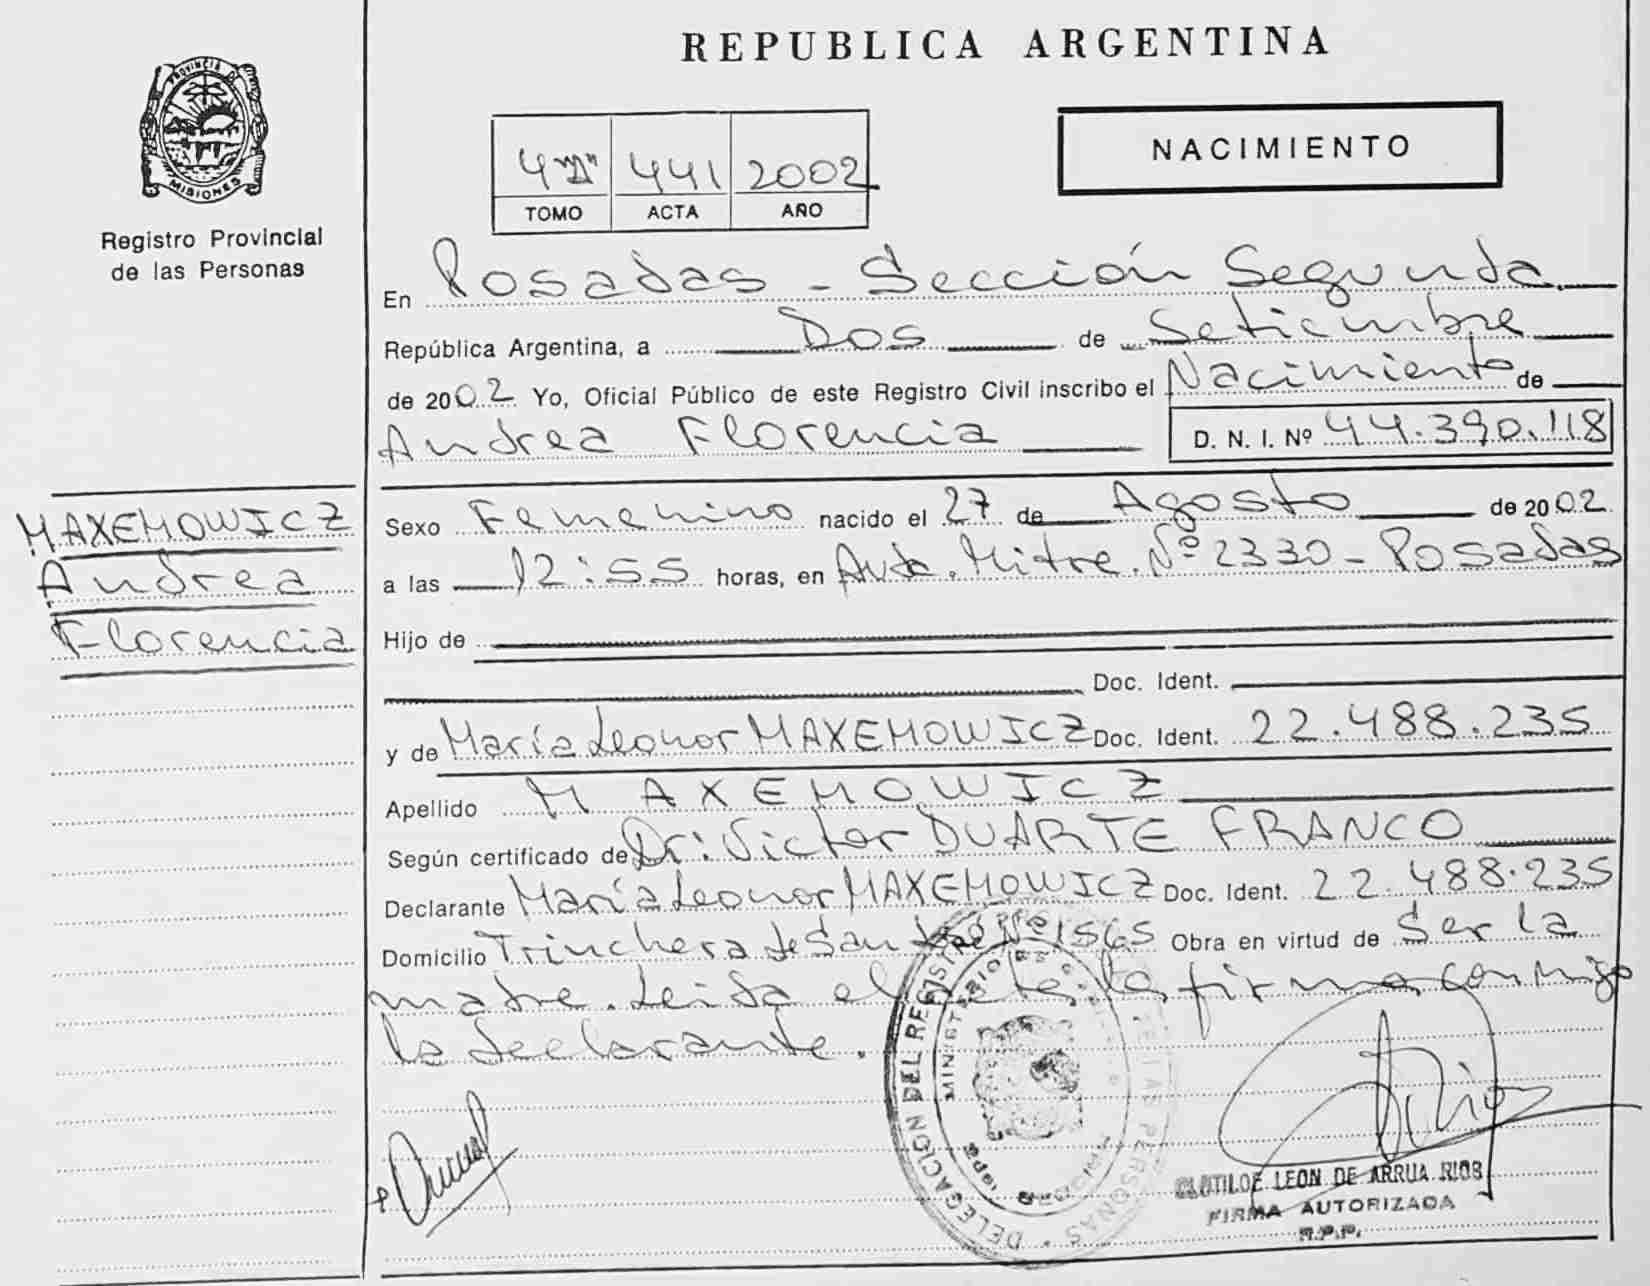 REPUBLICA ARGENTINA
PROVINCIA DE
MISIONES
Registro Provincial
de las Personas
4 441 2002
TOMO ACTA AÑO
NACIMIENTO
En Posadas - Sección Segunda
República Argentina, a Dos de Setiembre
de 2002 Yo, Oficial Público de este Registro Civil inscribo el Nacimiento de
Andrea Florencia D. N. I. Nº 44.390.118
MAXEMOWICZ
Andrea
Florencia
Sexo Femenino nacido el 27 de Agosto de 2002
a las 12:55 horas, en Avda. Mitre. Nº 2330 - Posadas
Hijo de
Doc. Ident.
y de María Leonor MAXEMOWICZ Doc. Ident. 22.488.235
Apellido MAXEMOWICZ
Según certificado de Dr: Victor DUARTE FRANCO
Declarante María Leonor MAXEMOWICZ Doc. Ident. 22.488.235
Domicilio Trinchera de San José Nº 1565 Obra en virtud de Ser la
madre. Leída el acta, la firma conmigo
la declarante.
DELEGACION DEL REGISTRO DE LAS PERSONAS
MINISTERIO DE
CLOTILDE LEON DE ARRUA RIOS
FIRMA AUTORIZADA
R.P.P.